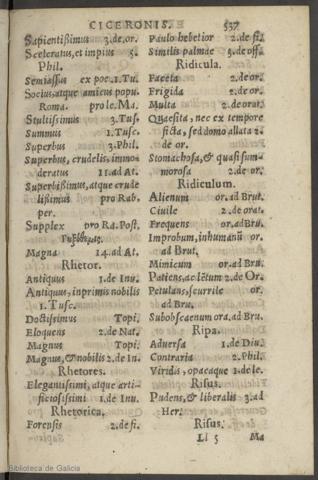 CICERONIS. 537
Sapientißimus 3.de.or.
Sceleratus, et impius 5.
Phil.
Semiassus ex poe. 1.Tu.
Socius, atque amicus popu.
Roma. pro le. Ma.
Stultissimus 3. Tus.
Summus 1. Tusc.
Superbus 3. Phil.
Superbus, crudelis, immo-
deratus 11. ad At.
Superbißimus, atque crude
lißimus pro Rab.
per.
Supplex pro Ra. Post.
Magna 14. ad At.
Rhetor.
Antiquus 1. de Inu.
Antiquus, inprimis nobilis
1. Tusc.
Doctißimus Topi.
Eloquens 2. de Nat.
Magnus Topi.
Magnus, & nobilis 2. de In.
Rhetores.
Elegantissimi, atque arti-
ficiosissimi 1. de Inu.
Rhetorica.
Forensis 2. de fi.
Paulo hebetior 2. de fi.
Similis palmae 5. de off.
Ridicula.
Faceta 2. de or.
Frigida 2. de or.
Multa 2. de orat.
Quaesita, nec ex tempore
ficta, sed domo allata 2.
de or.
Stomachosa, & quasi sum-
morosa 2. de or.
Ridiculum.
Alienum or. ad Brut.
Ciuile 2. de orat.
Frequens or. ad Bru.
Improbum, inhumanũ or.
ad Brut.
Mimicum or. ad Bru.
Patiens, ac lẽtum 2. de Or.
Petulans, scurrile or.
ad Bru.
Subobscaenum ora. ad Bru.
Ripa.
Aduersa 1. de Diu.
Contraria 2. Phil.
Viridis, opacaque 1. de le.
Risus.
Pudens, & liberalis 3. ad
Her.
Risus.
Ll 5 Ma
Biblioteca de Galicia